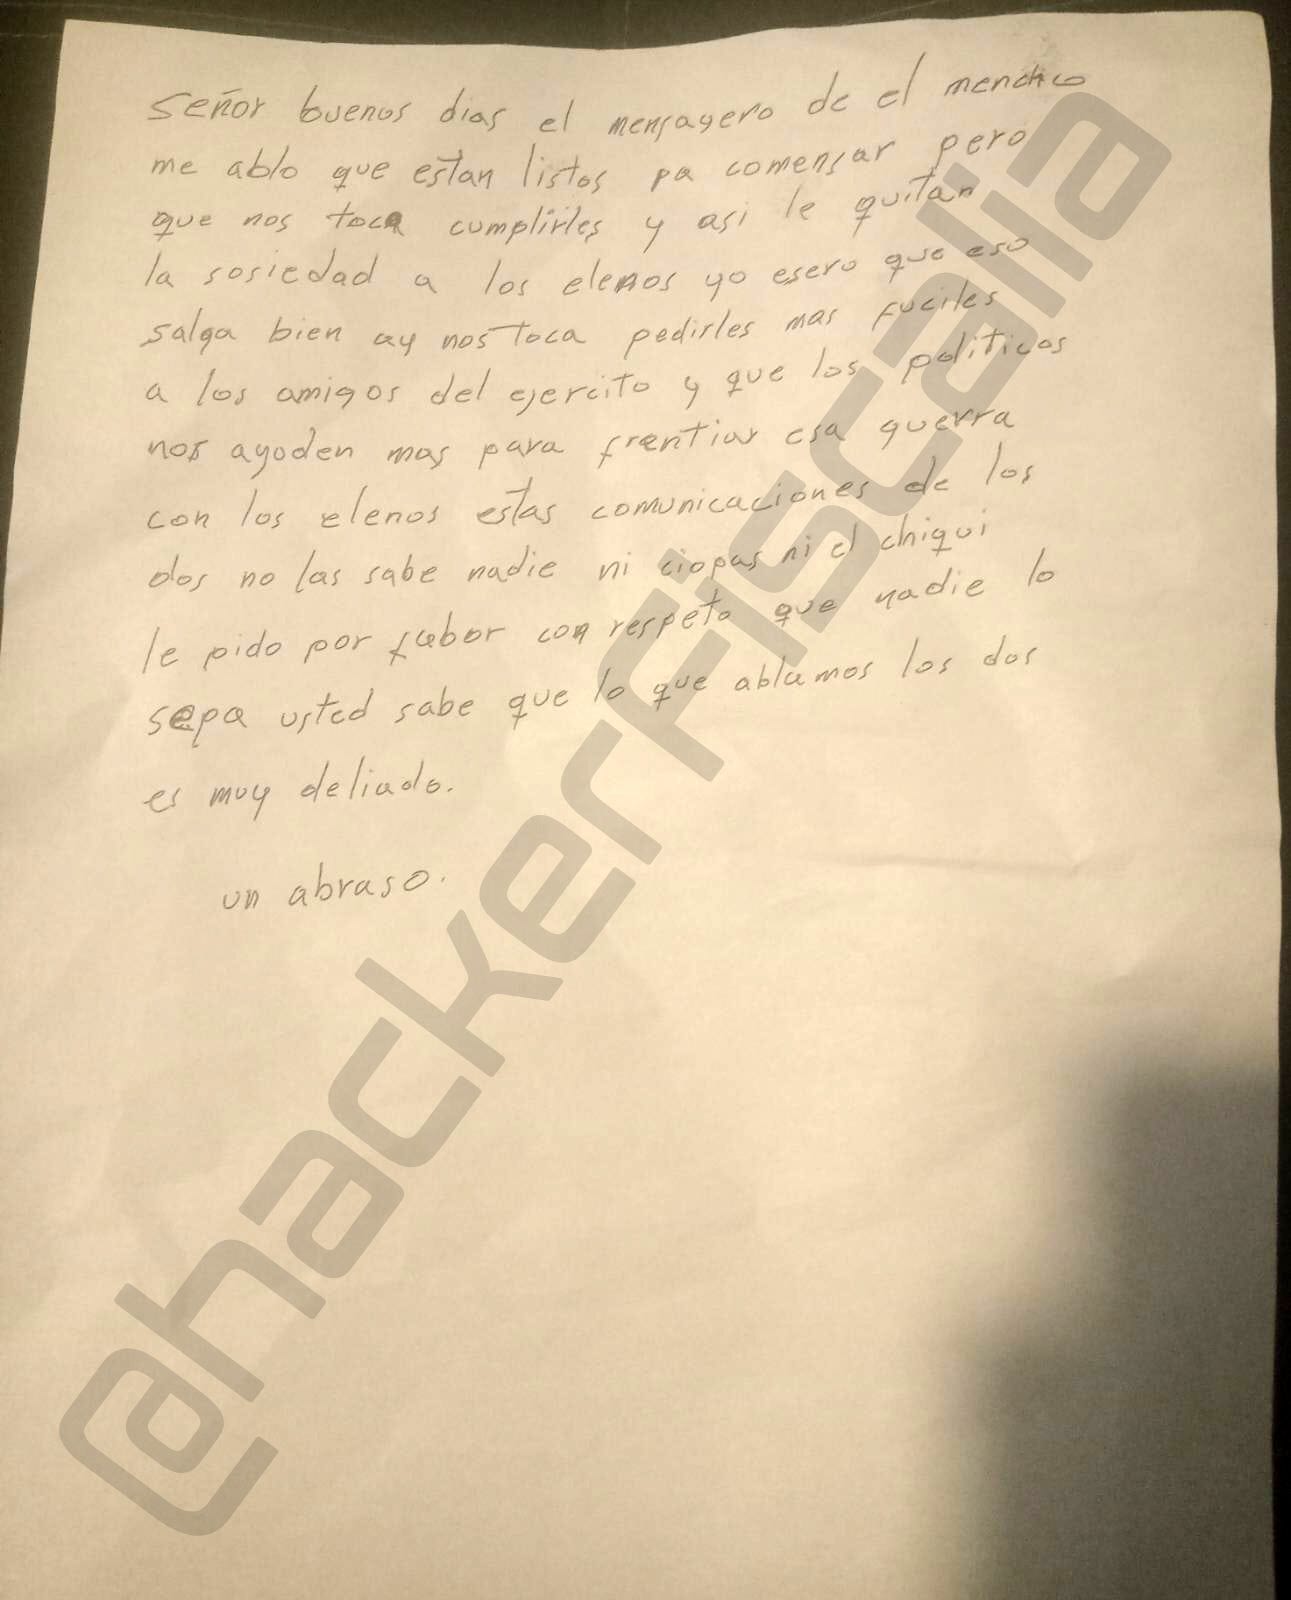 Señor buenos dias el mensagero de el mencho
me ablo que estan listos pa comensar pero
que nos toca cumplirles y asi le quitan
la sosiedad a los elenos yo esero que eso
salga bien ay nos toca pedirles mas fuciles
a los amigos del ejercito y que los politicos
nos ayoden mas para frentiar esa guerra
con los elenos estas comunicaciones de los
dos no las sabe nadie ni ciopas ni el chiqui
le pido por fabor con respeto que nadie lo
sepa usted sabe que lo que ablamos los dos
es muy deliado.
un abraso.
@hackerfiscalia